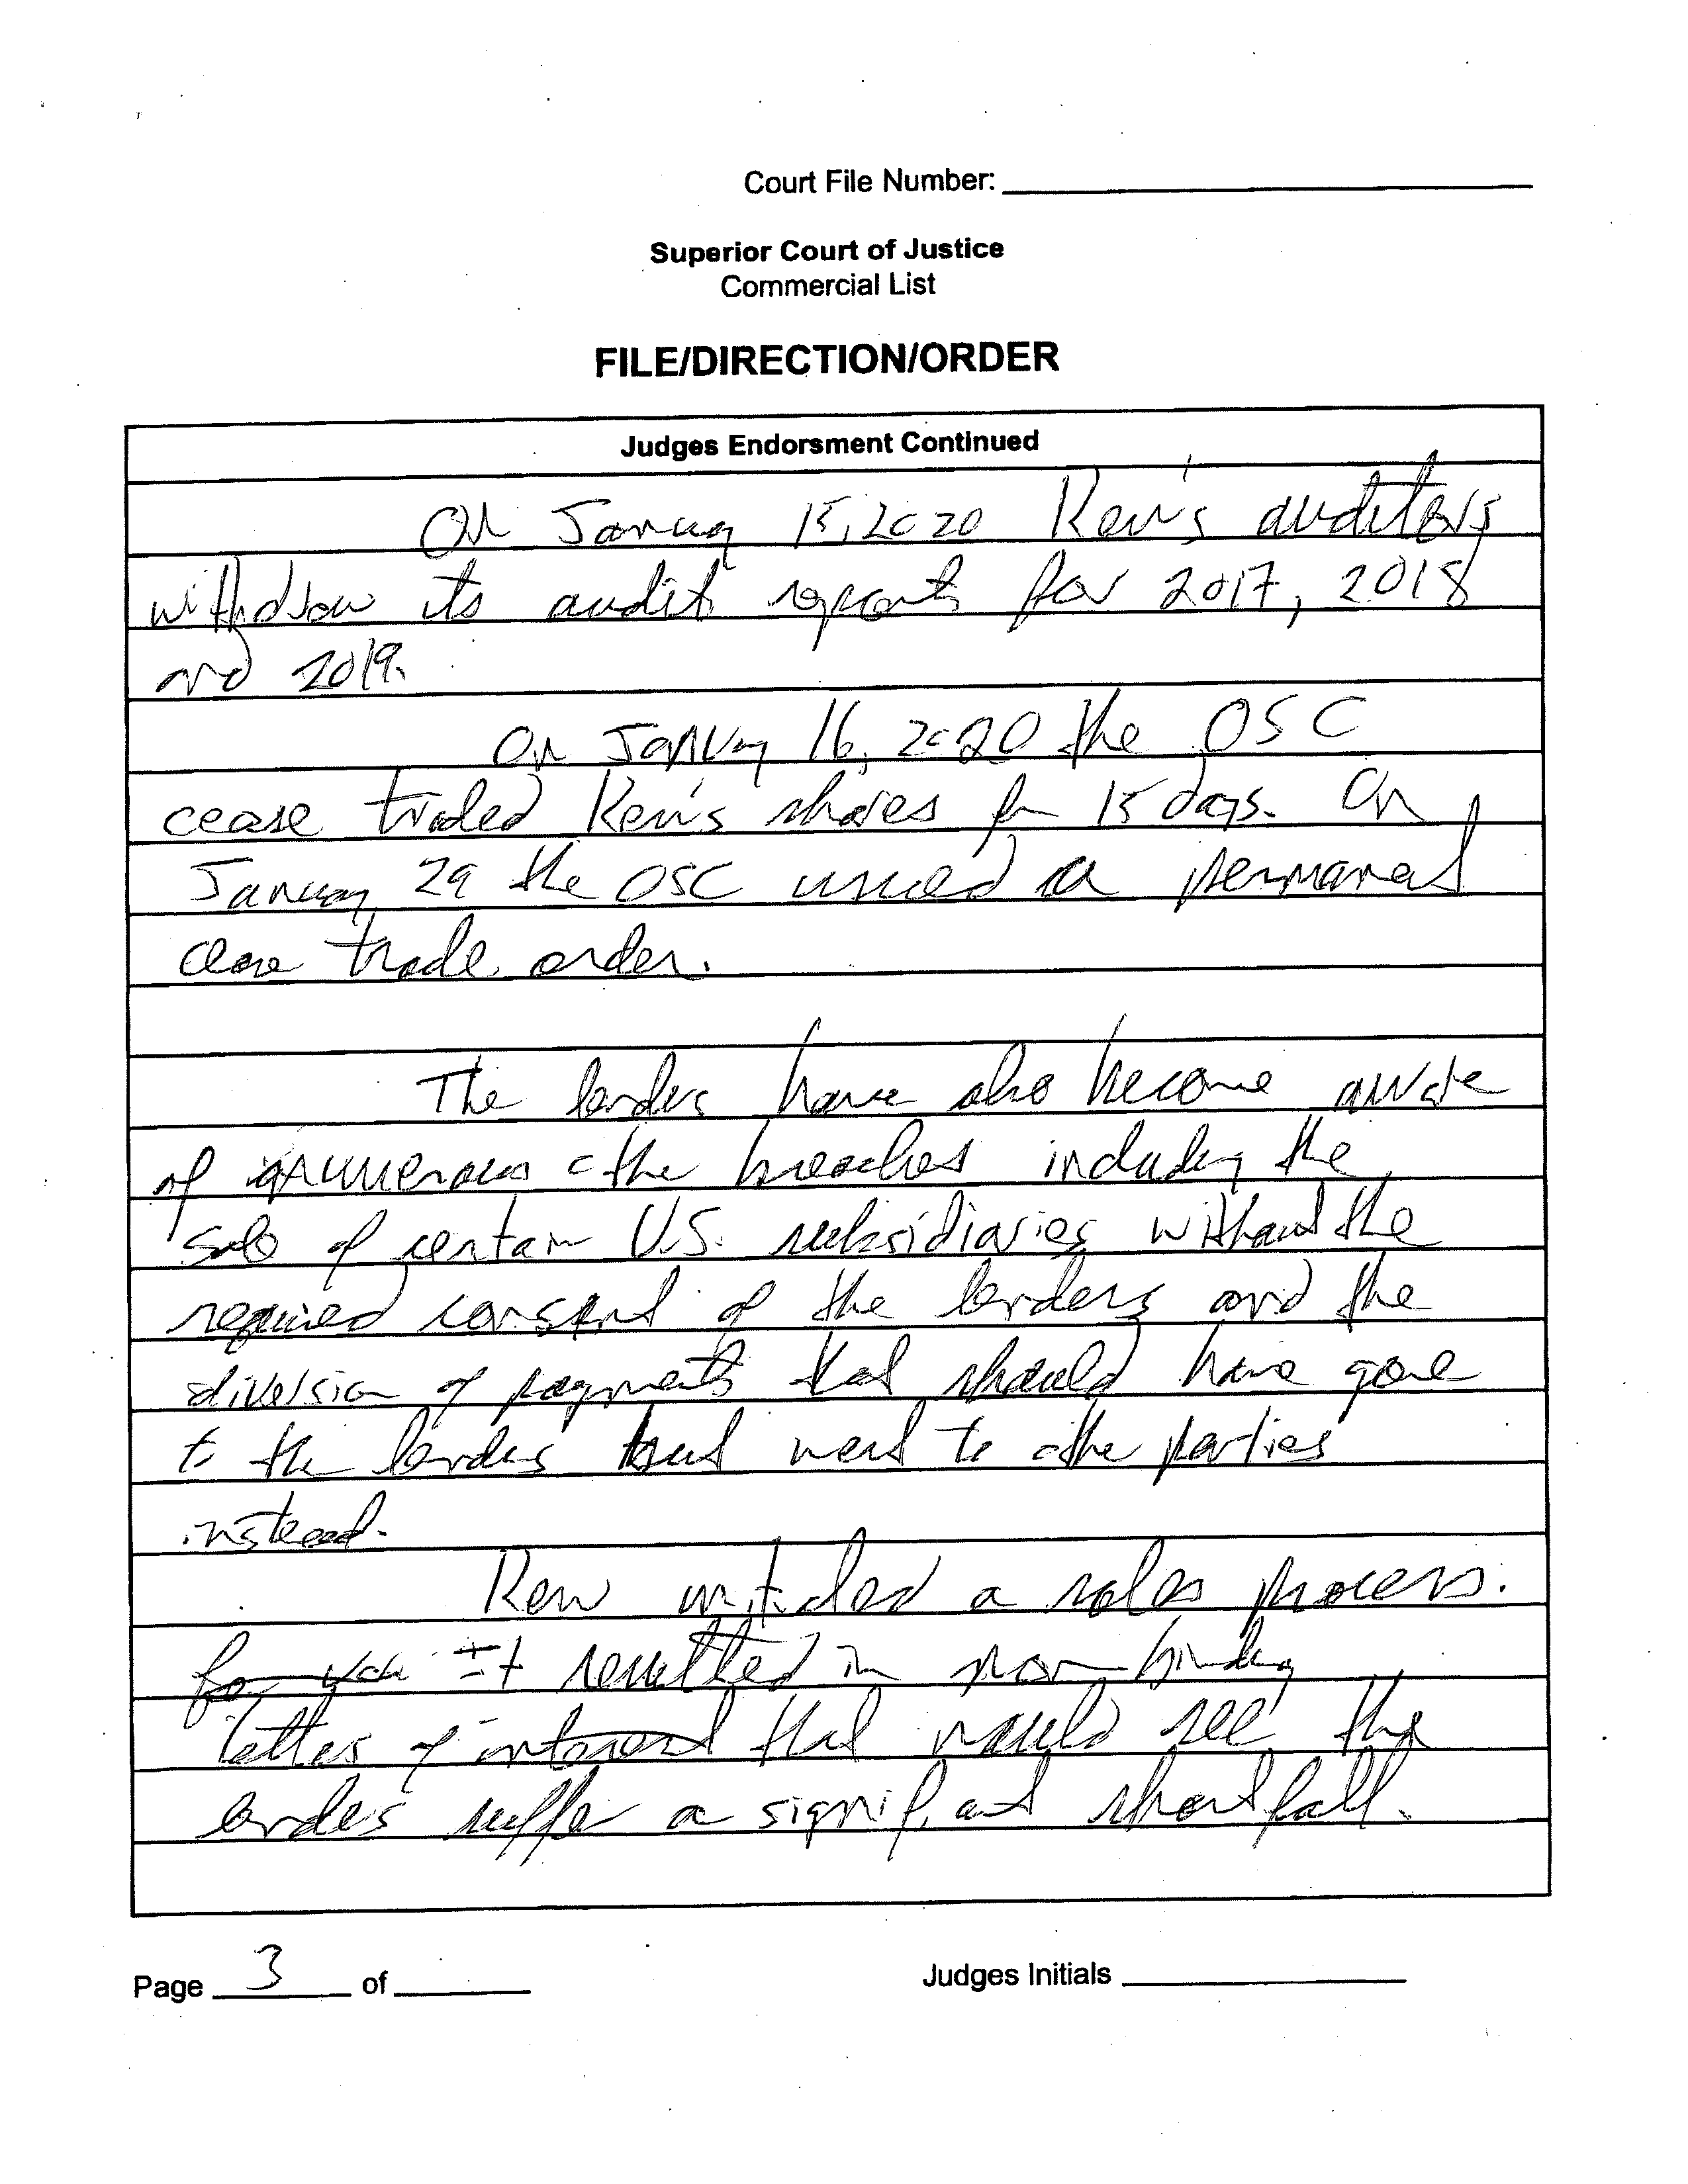 Court File Number:
Superior Court of Justice
Commercial List
FILE/DIRECTION/ORDER
Judges Endorsment Continued
On January 15, 2020 Kew's auditors
withdrew its audit reports for 2017, 2018
and 2019.
On January 16, 2020 the OSC
cease traded Kew's shares for 15 days. On
January 29 the OSC issued a permanent
cease trade order.
The lenders have also become aware
of numerous other breaches including the
sale of certain U.S. subsidiaries without the
required consent of the lenders and the
diversion of payments that should have gone
to the lenders but went to other parties
instead.
Kew initiated a sales process.
It resulted in non-binding
letters of interest that would see the
lenders suffer a significant shortfall.
Page 3 of
Judges Initials